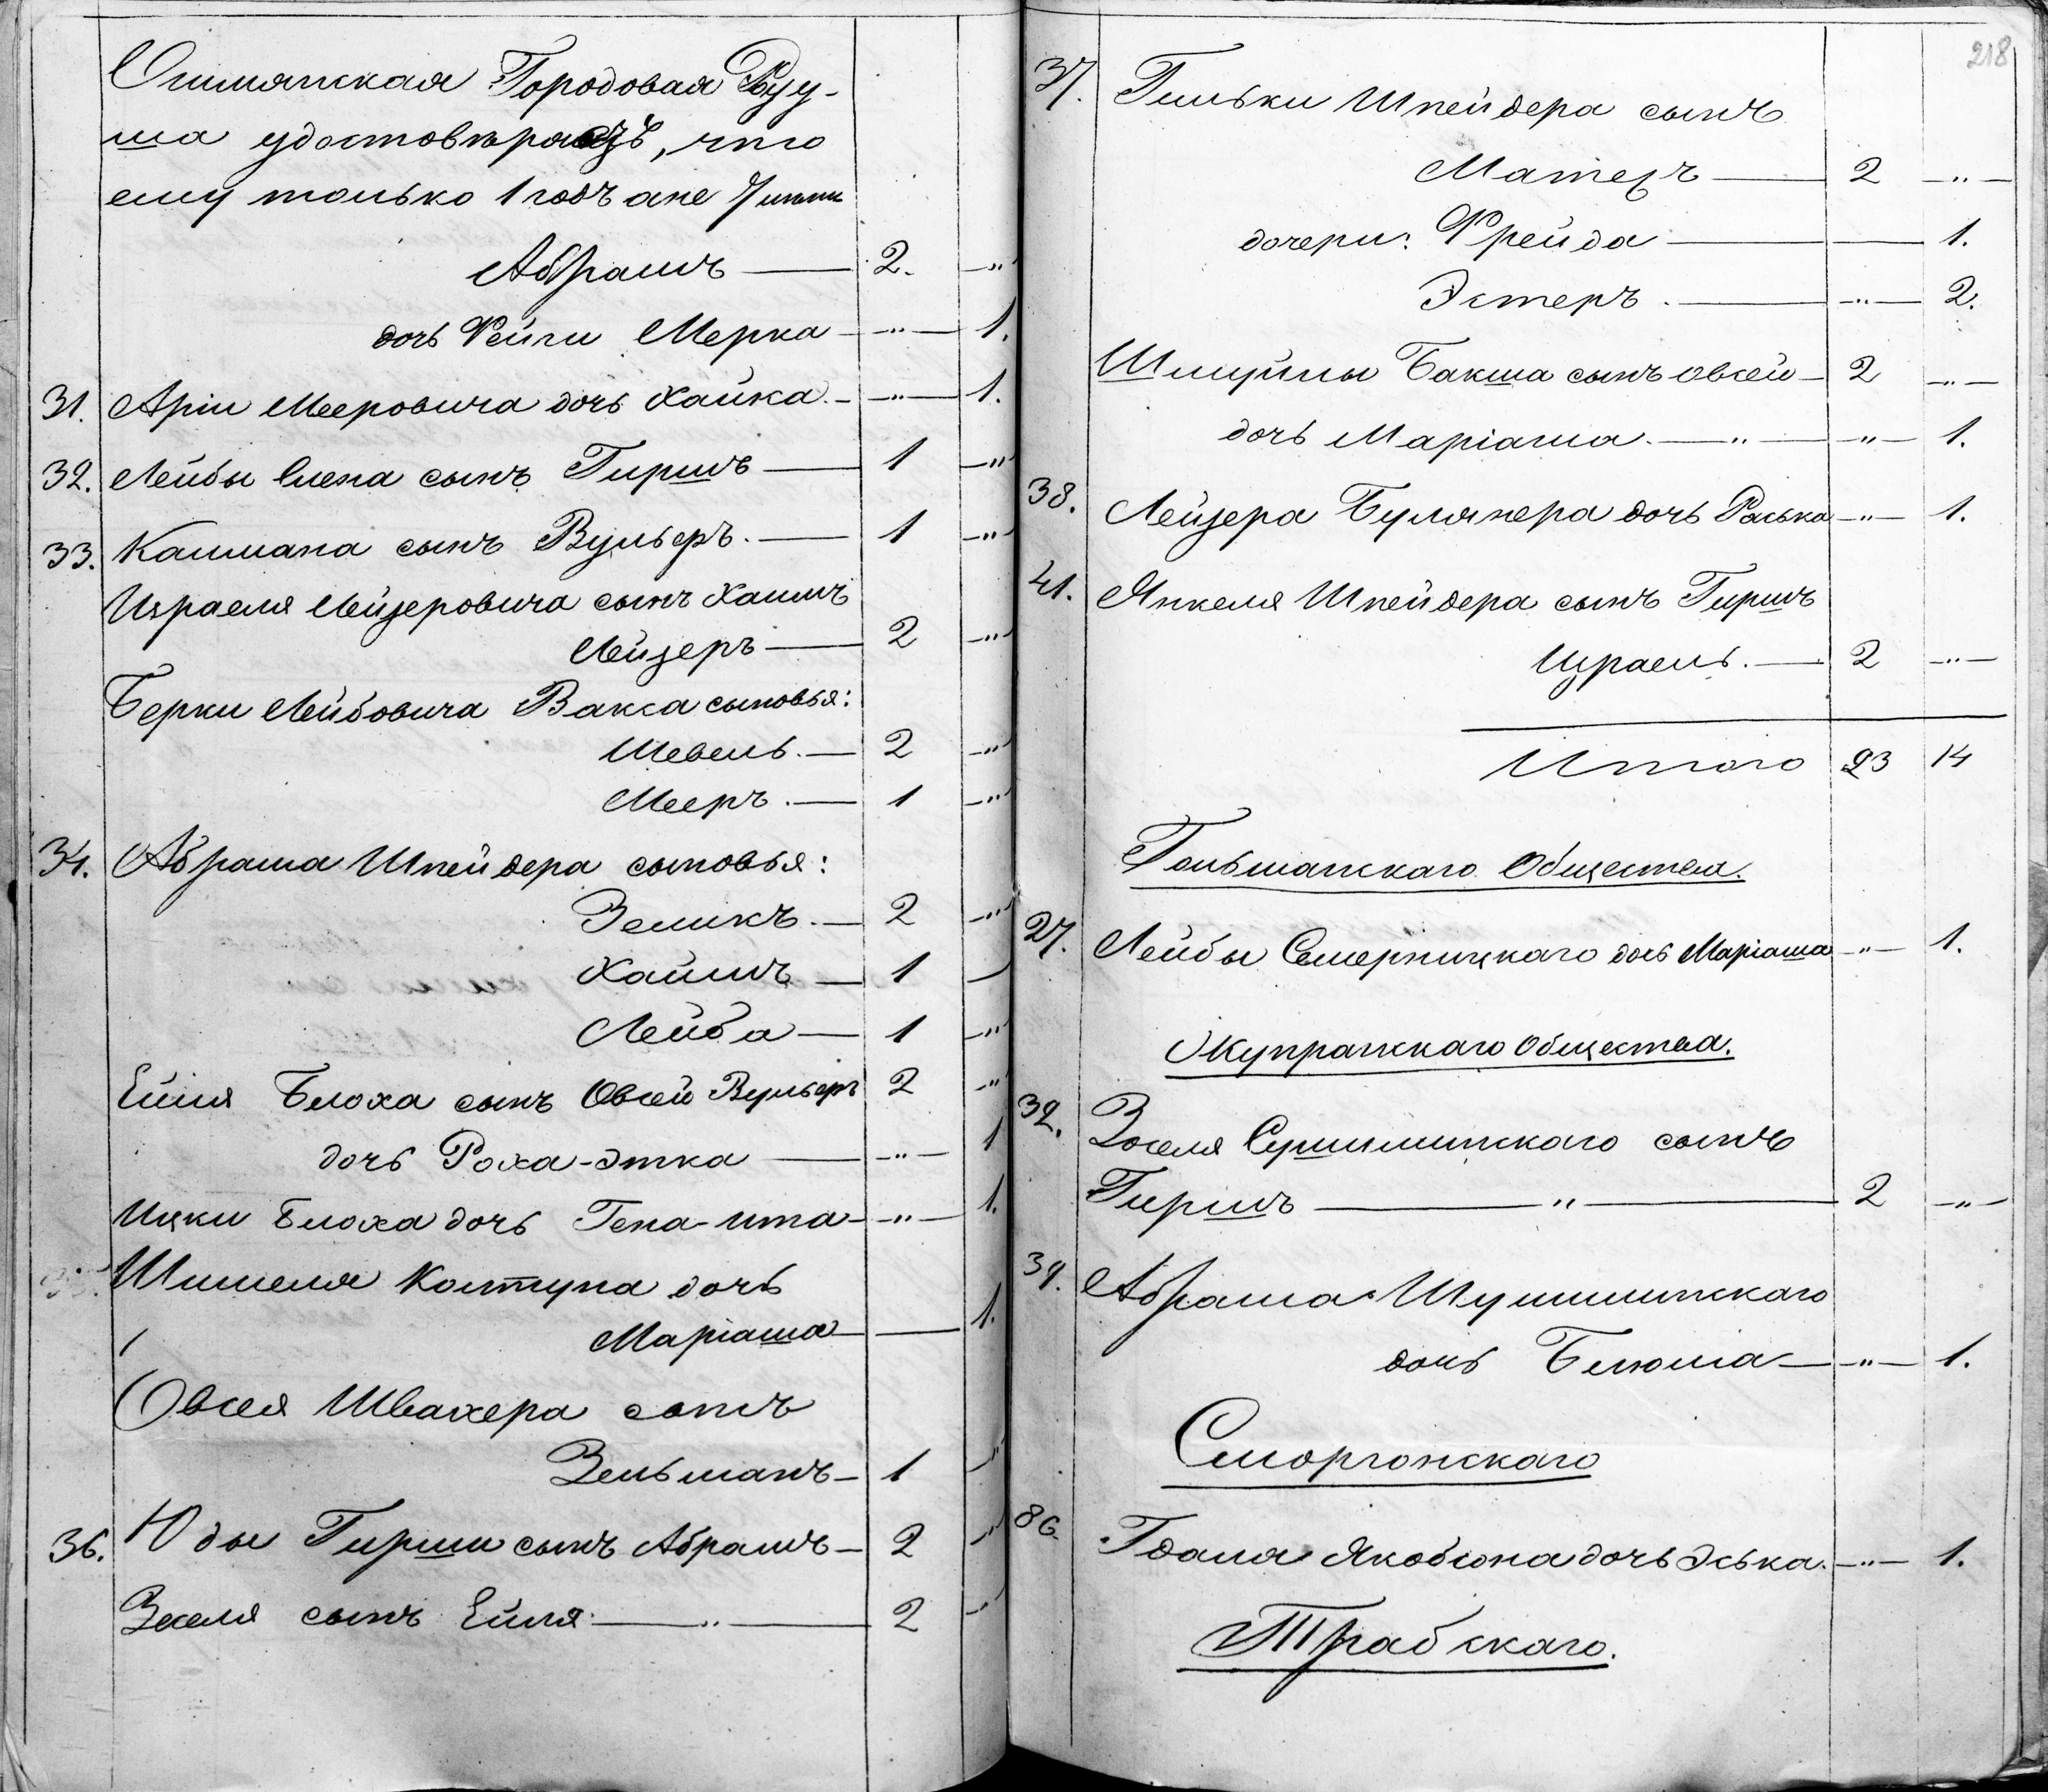 Ошмянская Городовая Рату-
ша удостовѣряетъ, что
ему только 1 годъ а не 7 лѣтъ
Абрамъ — 2. — "
дочь Фейги Мерка — " — 1.
31. Арiи Мееровича дочь Хайка. — " — 1.
32. Лейбы сынъ Гиршъ — 1 — "
33. Калмана сынъ Вульфъ. — 1 — "
Израеля Лейзеровича сынъ Хаимъ
Лейзеръ — 2 — "
Берки Лейбовича Вакса сыновья:
Шевель. — 2 — "
Мееръ. — 1 — "
34. Абрама Шнейдера сыновья:
Зеликъ. — 2 — "
Хаимъ — 1 —
Лейба — 1 — "
Ейля Блоха сынъ Овсей Вульфъ 2 — "
дочь Роха-Этка — " — 1
Ицки Блоха дочь Гена-Ита — " — 1.
35. Шмееля Колтуна дочь
Марiаша — 1.
Овсея Швахера сынъ
Зельманъ — 1 — "
36. Юды Гирши сынъ Абрамъ — 2 — "
Зеселя сынъ Ейля — " — 2 — "
218
37. Гильки Шнейдера сынъ
Матесъ — 2 — " —
дочери: Фрейда — 1.
Эстеръ. — " — 2.
Шмуйлы Бакша сынъ Овсей — 2 — " —
дочь Марiаша. — " — " — 1.
38. Лейзера Булянера дочь Раська — " — 1.
41. Янкеля Шнейдера сынъ Гиршъ
Израель. — 2 — " —
Итого 23 14
Гольшанскаго Общества.
27. Лейбы дочь Марiаша — " — 1.
Жупранскаго Общества.
32. Зоселя сынъ
Гиршъ — " — 2 — " —
39. Абрама Шушминскаго
дочь Блюма — " — 1.
Сморгонскаго
86. Гдаля Якобсона дочь Эська. — " — 1.
Трабскаго.